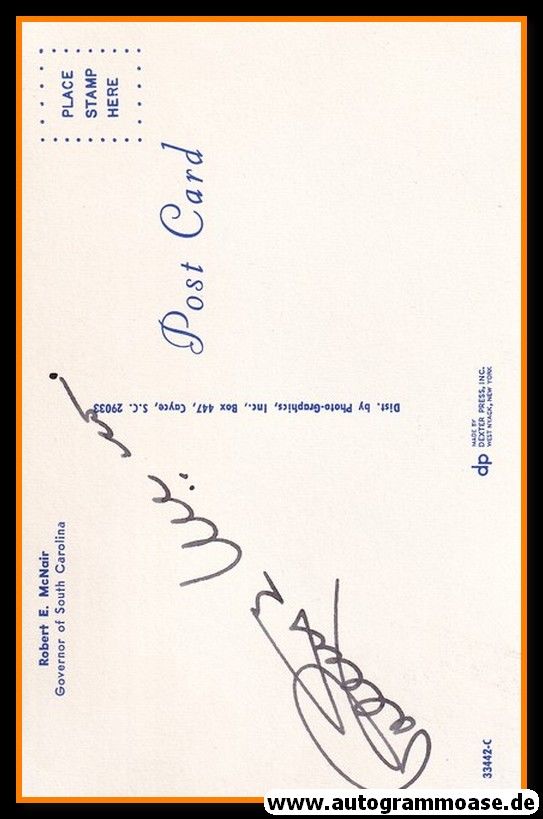 Robert E. McNair
Governor of South Carolina
Post Card
PLACE
STAMP
HERE
Dist. by Photo-Graphics, Inc., Box 447, Cayce, S.C. 29033
33442-C
dp
MADE BY
DEXTER PRESS, INC.
WEST NYACK, NEW YORK
www.autogrammoase.de